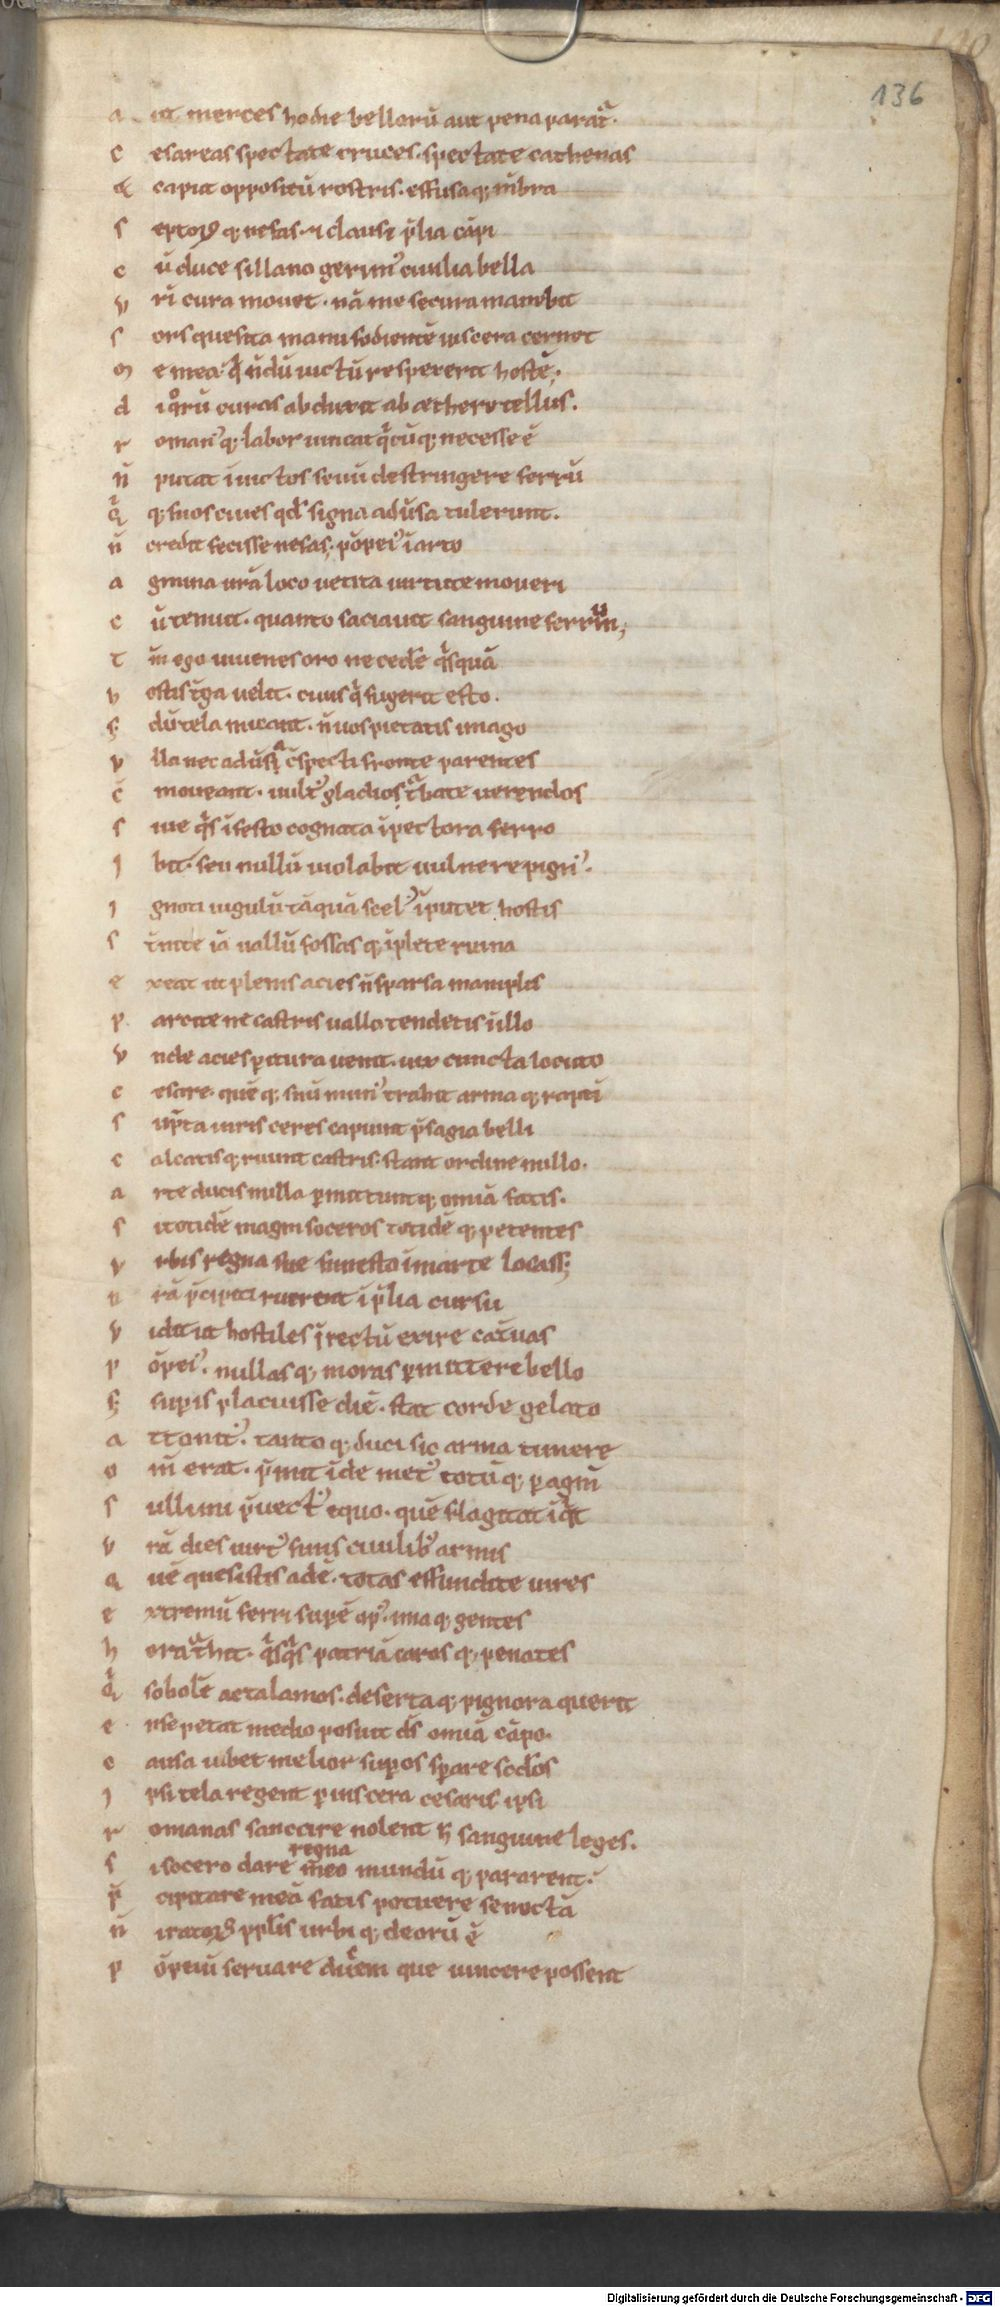 136
a ut merces hodie belloru᷄ aut pena parat᷑ᵃ.
c esareas spectate cruces. spectate cathenas
& caput oppositū rostris. effusaq; mēbra
s eptoꝝ q; nefas. ⁊ clausi p̄lia cāpi
c ū duce sillano gerim᷒ ciuilia bella
v ri cura mouet. nā me secura manebit
s ors quesita manu fodientē uiscera cernet
m e mea. q̄ n̄dū uictū respexerit hostē;
d ii qͦrū curas abduxit ab aethere tellus.
r oman᷒ q; labor uincat qͥcūq; necesse ē
n̄ putat i uictos seuū destringere ferrū
qͥ q; suos ciues qd̄ signa aduersa tulerunt.
n̄ credit fecisse nefas. pōpei᷒ i arto
a gmina urā loco uetita uirtute moueri
c ū tenuit. quanto saciauit sanguine ferrum;
t m̄ ego iuuenes oro ne ced̄e qͥsquā
v ostis t̄ga uelit. ciuis qͥ fugerit esto.
s; dū tela micant. n̄ uos pietatis imago
v lla nec aduͣsi c̄specti fronte parentes
c̄ moueant. uult᷒ gladios tᵃbate uerendos
s iue qͥs i festo cognata i pectora ferro
i bit. seu nullū uiolabit uulnere pign᷒.
i gnoti iugulū tāquā scel᷒ iputet hostis
s t̄nite iā uallū fossas q; iplete ruina
e xeat ut plenis acies n̄ sparsa maniplis
p arcite ne castris uallo tendetis illo
v nde acies p̲itura uenit. uix cuncta locuto
c esare. quē q; suū mun᷒ trahit arma q; rapti
s ūpta uiris ceres capiunt p̄sagia belli
c alcatisq; ruunt castris. stant ordine nullo.
a rte ducis nulla p̲mittuntq; omīa fatis.
s i totidē magni soceros totidē q; petentes
v rbis regna sue funesto i marte locass;
n rā p̄cipiti ruerent i p̄lia cursu
v idit ut hostiles i rectū exire cat̄uas
p ōpei᷒. nullas q; moras p̲mittere bello
s; sup̲is placuisse diē. stat corde gelato
a ttonit᷒. tanto q; duci sic arma timere
o m̄ erat. p̄mit īde met᷒ totū q; p̲ agm̄
s ullimi p̄uect᷒ equo. quē flagitat iqͥt
v rā dies uirt᷒ finis ciuilib᷒ armis
q uē quesistis adē. totas effundite uires
e xtremū ferri sup̲ē op᷒. una q; gentes
h ora tᵃhit. qͥsqͥs patriā caros q; penates
qͥ sobolē ac talamos. deserta q; pignora querit
e nse petat medio posuit ds̄ omīa cāpo.
c ausa iubet melior sup̲os sp̲are sēdos
i psi tela regent p̲ uiscera cesaris ipsi
r omanas sanccire uolent h̄ sanguine leges.
s i socero dare regna meo mundū q; pararent.
p̄ cipitare meā fatis potuere senectā
n̄ iratoꝝ pp̄lis urbi q; deorū ē
p ōpeiū seruare ducem que uincere possent
Digitalisierung gefördert durch die Deutsche Forschungsgemeinschaft - DFG